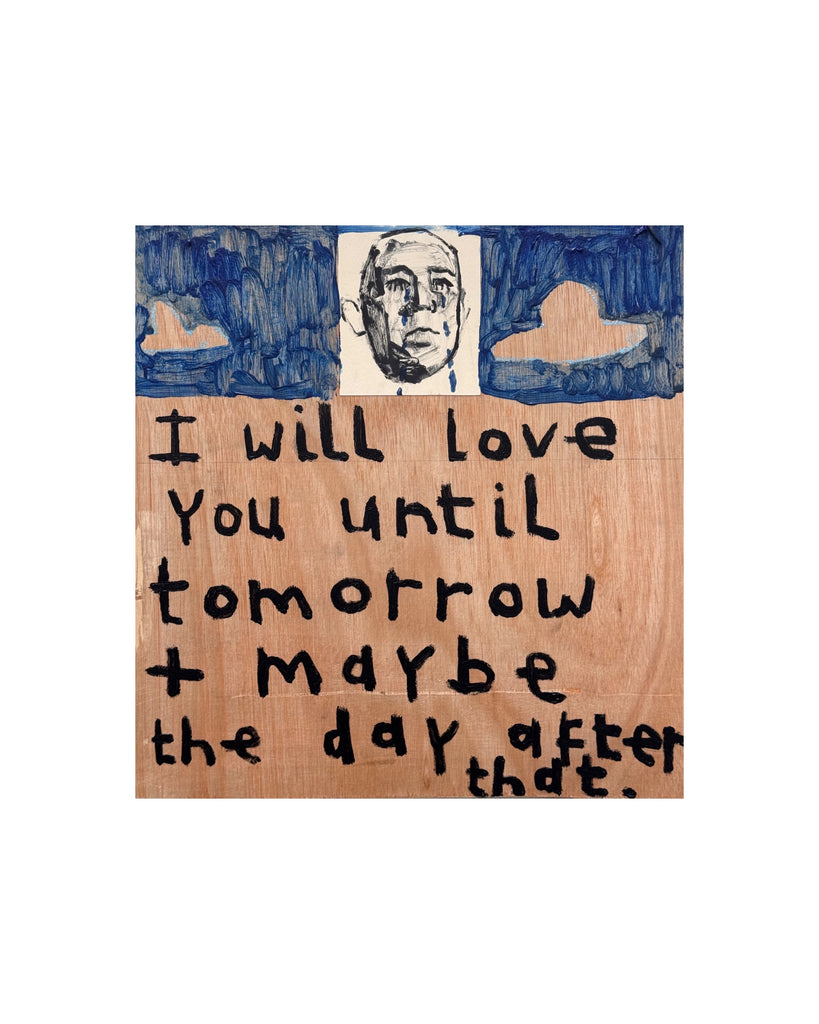 I will love
You until
tomorrow
+ maybe
the day after
that.